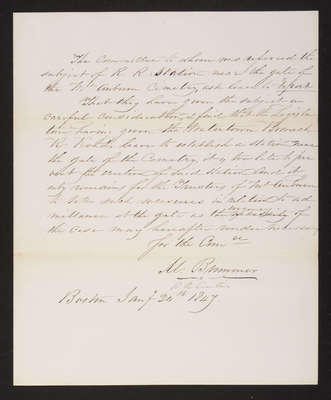 The Committee to whom was referred the
subject of R. R. Station near the gate of
the Mt Auburn Cemetery ask leave to Report
That they have given the subject a
careful consideration & find that the Legisla
ture having given the Watertown Branch
R. Road leave to establish a station near
the gate of the Cemetery, it is too late to pre
vent the erection of said station, and it
only remains for the Trustees of Mt Auburn
to take such measures in relation to ad
mittance at the gate as the of
the case may hereafter render necessary
for the Comee
B
of the Committee
Boston Jany 20th 1847